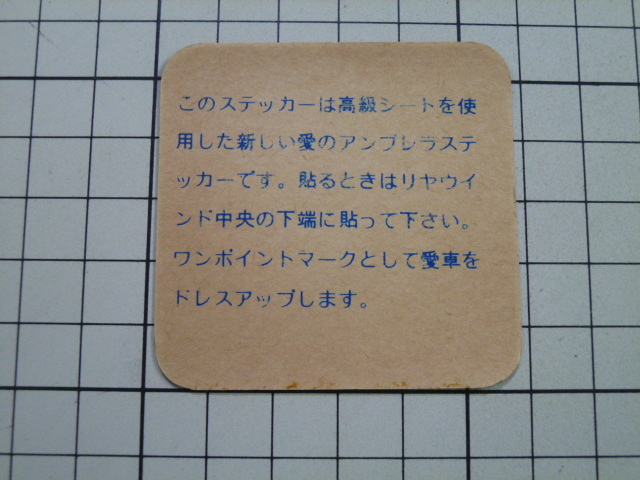 このステッカーは高級シートを使
用した新しい愛のアンブレラステ
ッカーです。貼るときはリヤウイ
ンド中央の下端に貼って下さい。
ワンポイントマークとして愛車を
ドレスアップします。